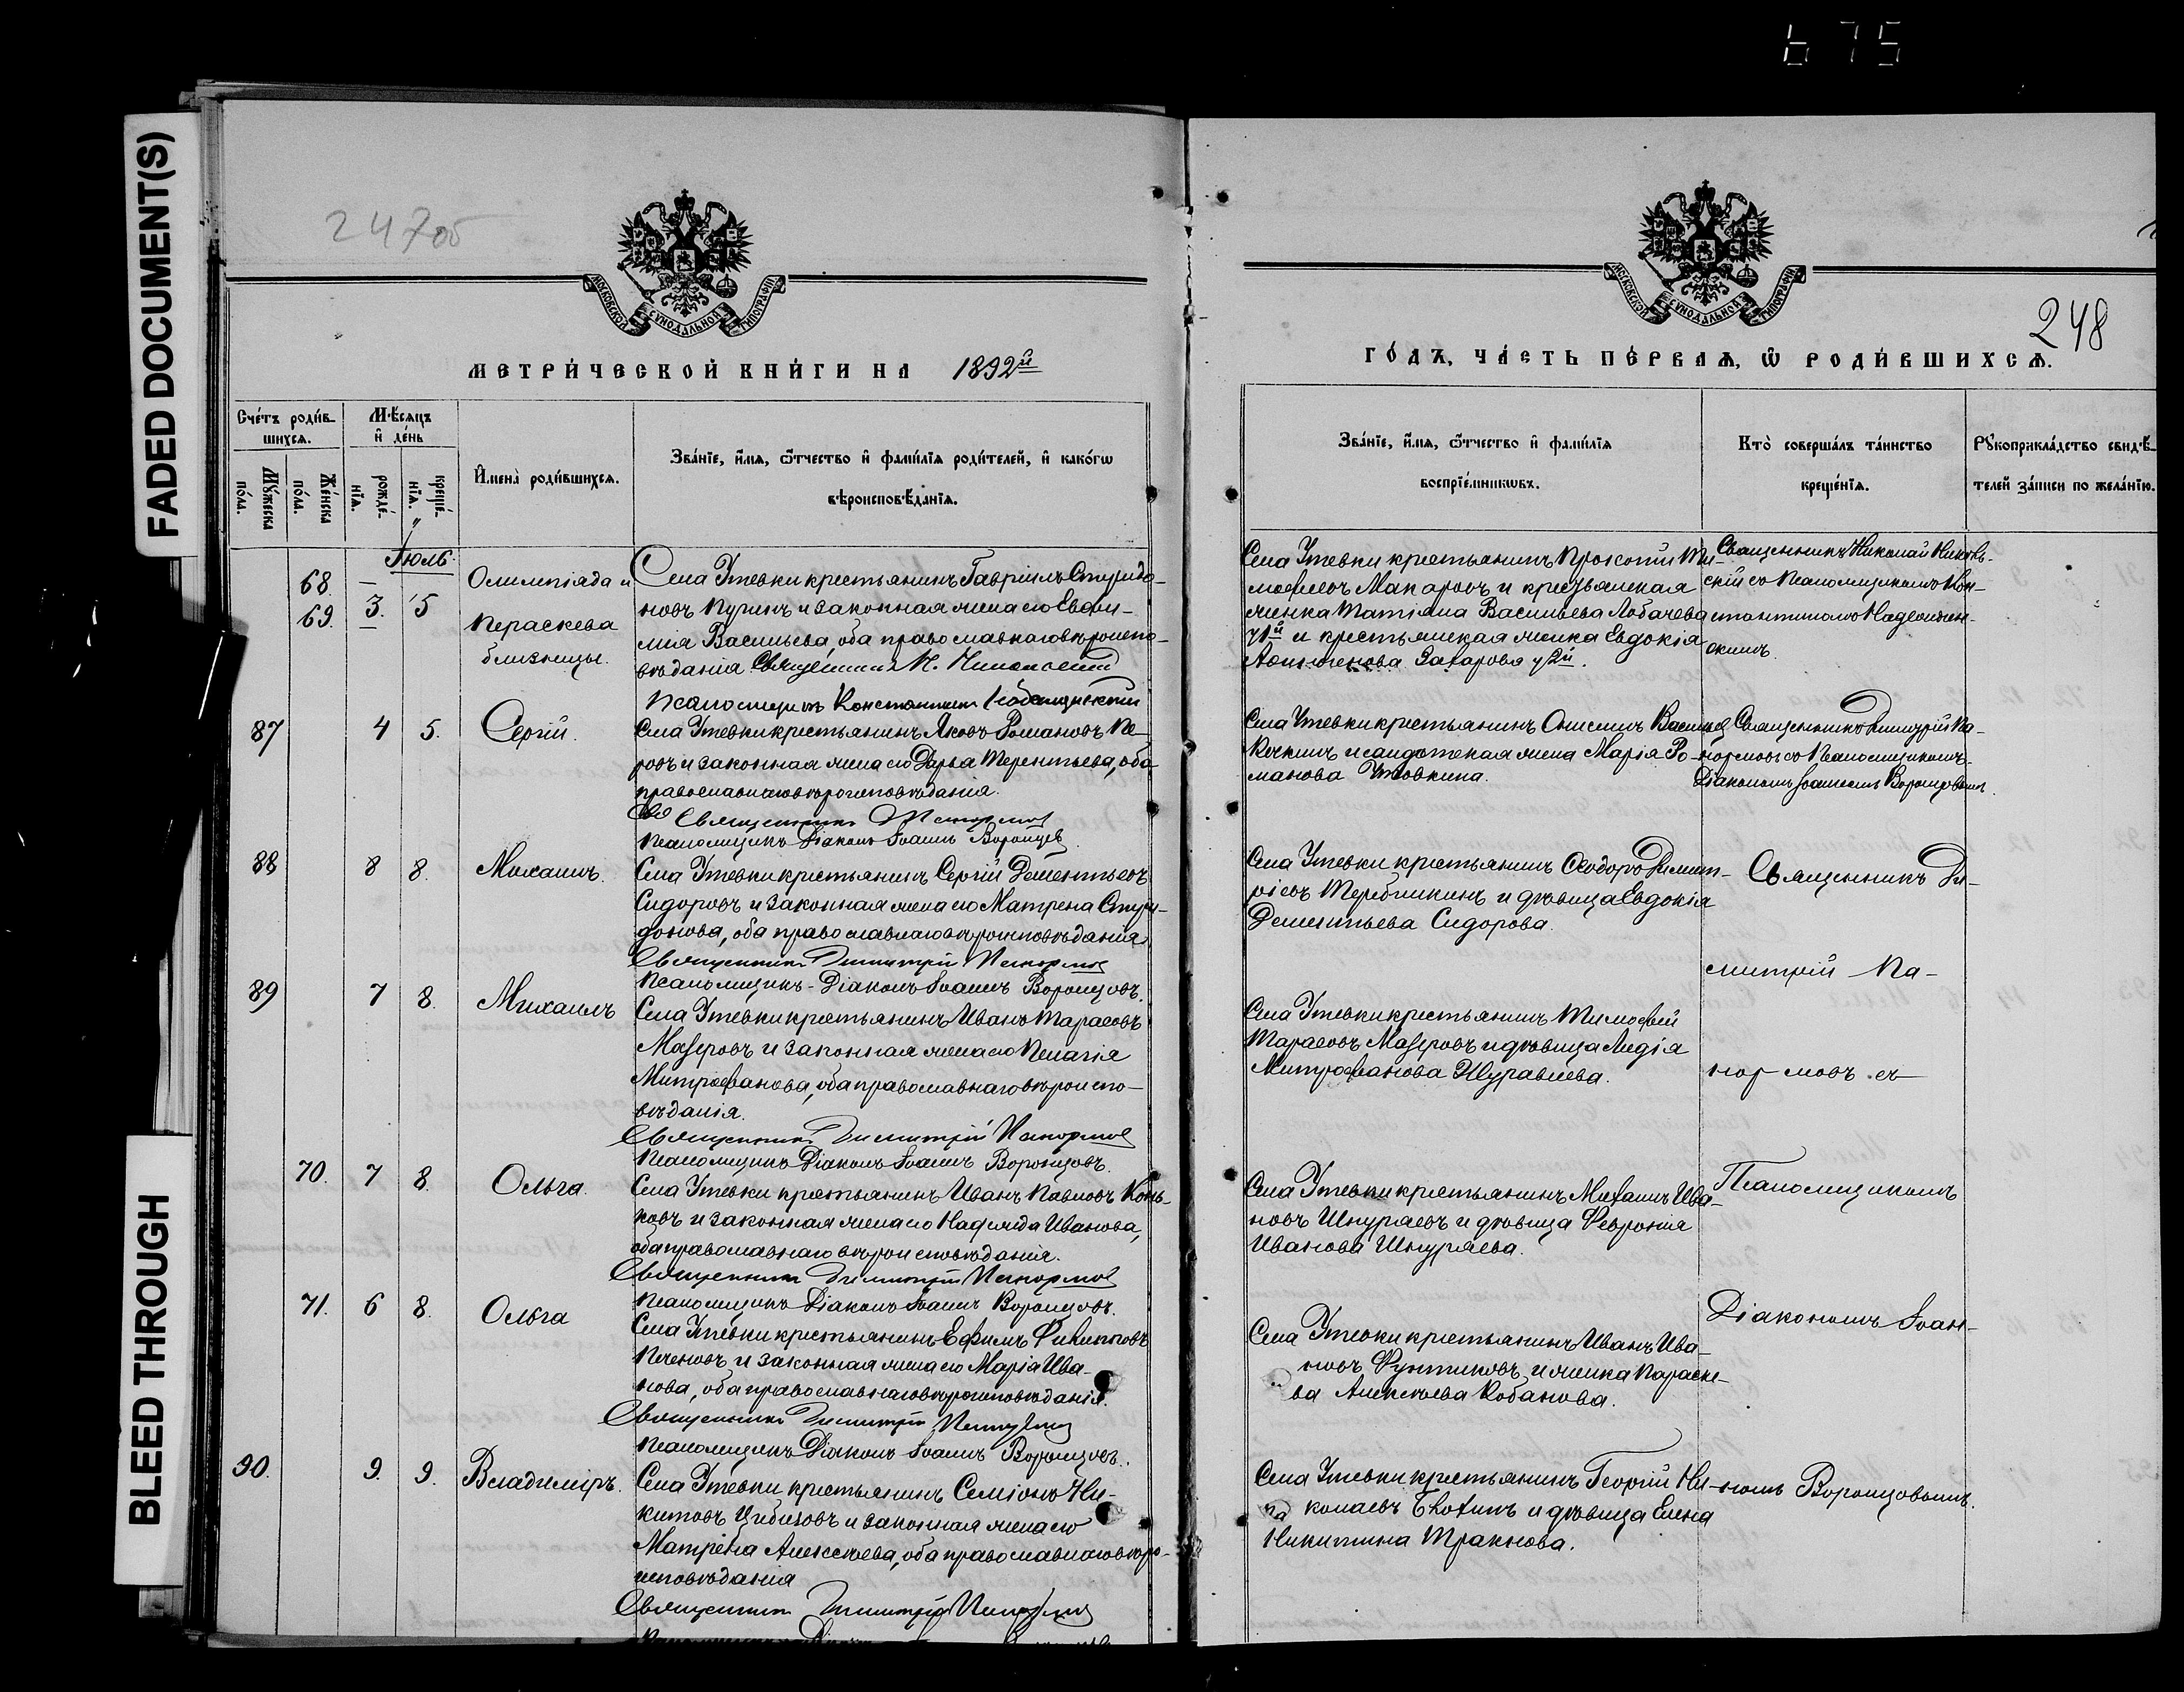 675
FADED DOCUMENT(S)
BLEED THROUGH
247об
МОСКОВСКОЙ СУНОДАЛЬНОЙ ТИПОГРАФІИ
МЕТРИ́ЧЕСКОЙ КНИ́ГИ НА 1892й
Сче́тъ роди́в-
шихсѧ.
Мѣ́сѧцъ
и҆ де́нь
Мꙋ́жеска
по́ла.
Же́нска
по́ла.
рожде́-
нїѧ.
креще́-
нїѧ.
И҆мена̀ роди́вшихсѧ.
Зва́нїе, и҆́мѧ, ѻ҆́тчество и҆ фами́лїѧ роди́телей, и҆ како́гѡ
вѣроисповѣ́данїѧ.
Іюль
68.
69. 3. 5
Олимпіада и
Параскева
близнецы.
Села Утевки крестьянинъ Гавріилъ Спиридо-
новъ Пупинъ и законная жена его Евфи-
мія Васильева, оба православнаго вѣроиспо-
вѣданія. Священникъ Н.
Псаломщикъ Константинъ
87 4 5. Сергій.
Села Утевки крестьянинъ Яковъ Романовъ Пе-
ровъ и законная жена его Дарья Терентьева, оба
православнаго вѣроисповѣданія.
Священникъ Панормов
Псаломщикъ Діаконъ Іоаннъ Воронцов
88 8 8. Михаилъ.
Села Утевки крестьянинъ Сергій Дементьевъ
Сидоровъ и законная жена его Матрена Спири-
донова, оба православнаго вѣроисповѣданія.
Священникъ Димитрій Панормов
Псаломщикъ-Діаконъ Іоаннъ Воронцовъ.
89 7 8. Михаилъ
Села Утевки крестьянинъ Иванъ Тарасовъ
Мазеровъ и законная жена его Пелагія
Митрофанова, оба православнаго вѣроиспо-
вѣданія.
Священникъ Димитрій Панормов
Псаломщикъ Діаконъ Іоаннъ Воронцовъ.
70. 7 8. Ольга.
Села Утевки крестьянинъ Иванъ Павловъ Конь-
ковъ и законная жена его Надежда Иванова,
оба православнаго вѣроисповѣданія.
Священникъ Димитрій Панормов
Псаломщикъ Діаконъ Іоаннъ Воронцовъ.
71. 6 8. Ольга
Села Утевки крестьянинъ Ефимъ Филипповъ
и законная жена его Марія Ива-
нова, оба православнаго вѣроисповѣданія.
Священникъ Димитрій Панормов
Псаломщикъ Діаконъ Іоаннъ Воронцовъ.
90. 9. 9. Владиміръ.
Села Утевки крестьянинъ Семіонъ Ни-
китовъ Цибизовъ и законная жена его
Матрена Алексѣева, оба православнаго вѣро-
исповѣданія
Священникъ Димитрій Панормов
248
МОСКОВСКОЙ СУНОДАЛЬНОЙ ТИПОГРАФІИ
ГО́ДЪ, ЧА́СТЬ ПЕ́РВАѦ, Ѡ҆ РОДИ́ВШИХСѦ.
Зва́нїе, и҆́мѧ, ѻ҆́тчество и҆ фами́лїѧ
воспрїе́мникѡвъ.
Кто̀ соверша́лъ та́инство
креще́нїѧ.
Рꙋкоприкла́дство свидѣ́-
телей за́писи по жела́нїю.
Села Утевки крестьянинъ Прокопій Ти-
мофеевъ Макаровъ и крестьянская
женка Татіана Васильева Лобачева
у 1й и крестьянская женка Евдокія
Захарова у 2й.
Священникъ Николай
скій съ псаломщикомъ Кон-
стантиномъ
скимъ.
Села Утевки крестьянинъ Онисимъ Василье
и солдатская жена Марія Ро-
манова Утовкина.
Священникъ Димитрій Па-
нормовъ съ Псаломщикомъ-
Діакономъ Іоанномъ Воронцовымъ.
Села Утевки крестьянинъ Ѳеодоръ Димит-
ріевъ Теребшкинъ и дѣвица Евдокія
Дементьева Сидорова.
Священникъ Ди-
митрій Па-
Села Утевки крестьянинъ Тимофей
Тарасовъ Мазеровъ и дѣвица Лидія
Митрофанова Журавлева.
нормовъ съ
Села Утевки крестьянинъ Михаилъ Ива-
новъ Шнуряевъ и дѣвица Феврония
Иванова Шнуряева.
Псаломщикомъ
Діакономъ Іоан-
Села Утевки крестьянинъ Иванъ Ива-
новъ Фунтиковъ и женка Параске-
ва Алексѣева Кобанова.
Села Утевки крестьянинъ Георгій Ни-
колаевъ и дѣвица Елена
Никитина
номъ Воронцовымъ.